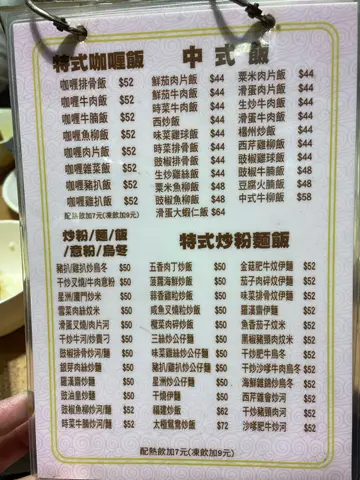 特式咖喱飯
咖喱排骨飯 $52
咖喱牛肉飯 $52
咖喱牛腩飯 $52
咖喱魚柳飯 $52
咖喱肉片飯 $52
咖喱雜菜飯 $52
咖喱豬扒飯 $52
咖喱雞扒飯 $52
配熱飲加7元(凍飲加9元)
中式飯
鮮茄肉片飯 $44
鮮茄牛肉飯 $44
時菜牛肉飯 $44
西炒飯 $44
味菜雞球飯 $44
時菜排骨飯 $44
豉椒排骨飯 $44
生炒雞絲飯 $44
粟米魚柳飯 $48
豉椒魚柳飯 $48
滑蛋大蝦仁飯 $64
粟米肉片飯 $44
滑蛋肉片飯 $44
生炒牛肉飯 $44
滑蛋牛肉飯 $44
楊州炒飯 $44
西芹雞柳飯 $44
豉椒雞球飯 $44
豉椒牛腩飯 $48
豆腐火腩飯 $48
中式牛柳飯 $58
炒粉/麵/飯
/意粉/烏冬
豬扒/雞扒炒烏冬 $50
干炒叉燒/牛肉意粉 $50
星洲/廈門炒米 $50
雪菜肉絲炆米 $50
滑蛋叉燒/肉片河 $50
干炒牛河/炒貴刁 $50
豉椒排骨炒河/麵 $50
銀芽肉絲炒麵 $50
羅漢齋炒麵 $50
豉油皇炒麵 $50
豉椒魚柳炒河/麵 $52
時菜牛腩炒河/麵 $52
特式炒粉麵飯
五香肉丁炒飯 $50
菠蘿海鮮炒飯 $50
蒜香雞粒炒飯 $50
咸魚叉燒粒炒飯 $50
欖菜肉碎炒飯 $50
三絲炒公仔麵 $50
味菜雞絲炒公仔麵 $50
豬扒/雞扒炒公仔麵 $50
星洲炒公仔麵 $50
干燒伊麵 $50
福建炒飯 $62
太極鴛鴦炒飯 $72
金菇肥牛炆伊麵 $52
茄子肉碎炆伊麵 $52
味菜排骨炆伊麵 $52
羅漢齋伊麵 $52
魚香茄子炆米 $52
黑椒豬頸肉炆米 $52
干炒肥牛烏冬 $52
干炒沙嗲牛肉烏冬 $52
海鮮雜錦炒烏冬 $52
西芹雞會炒河 $52
干炒豬頸肉河 $52
沙嗲肥牛炒河 $52
配熱飲加7元(凍飲加9元)